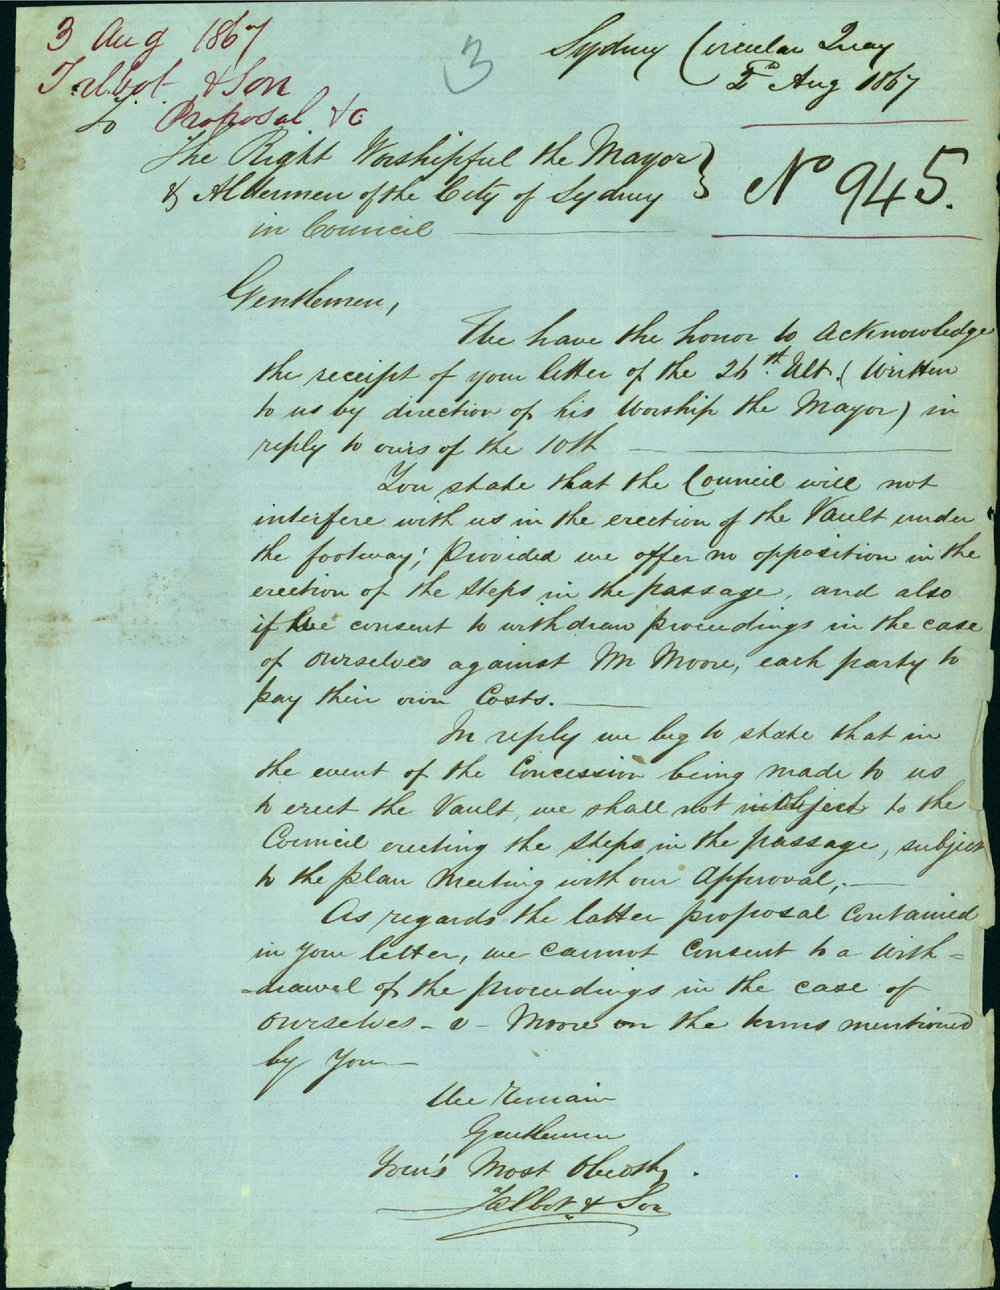 3 Aug 1867
Talbot & Son
Proposal &c
3
Sydney Circular Quay
2d Aug 1867
No 945.
To
The Right Worshipful the Mayor
& Aldermen of the City of Sydney
in Council
Gentlemen,
We have the honor to acknowledge
the receipt of your letter of the 26th Ult. (Written
to us by direction of his Worship the Mayor) in
reply to ours of the 10th
You state that the Council will not
interfere with us in the erection of the Vault under
the footway; Provided we offer no opposition in the
erection of the Steps in the passage, and also
if we consent to withdraw proceedings in the case
of ourselves against Mr Moore, each party to
pay their own Costs.
In reply we beg to state that in
the event of the Concession being made to us
to erect the Vault, we shall not object to the
Council erecting the Steps in the passage, subject
to the plan Meeting with our Approval;
As regards the latter proposal Contained
in your letter, we cannot Consent to a With=
=drawel of the proceedings in the case of
Ourselves - v - Moore on the terms mentioned
by You
We Remain
Gentlemen
Your's Most Obedtly.
Talbot & Son